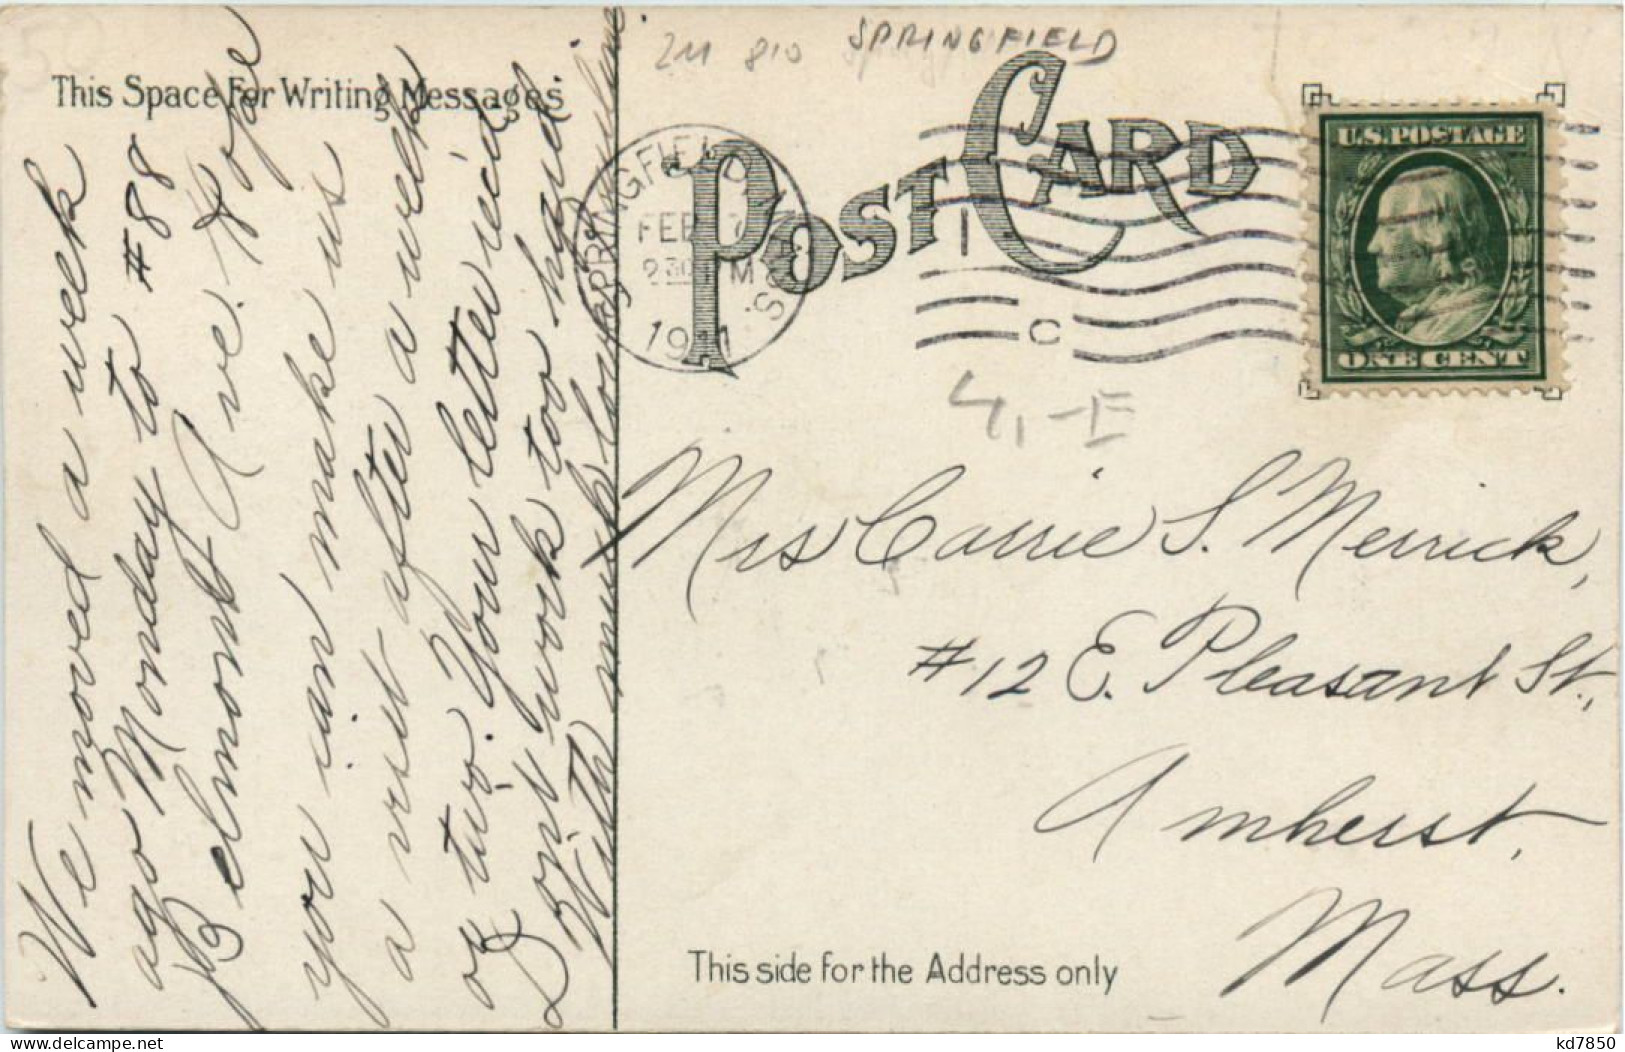 2M 810 SPRINGFIELD
This Space For Writing Messages
POST CARD
SPRINGFIELD, MASS.
FEB 7
9 30 M
1911
C
U.S. POSTAGE
ONE CENT
4,-E
We moved a week
ago Monday to #88
Belmont Ave. Hope
you can make us
a visit after a week
or two. Your letter rec'd.
Don't work too hard.
With much love
Mrs Carrie S. Merrick,
#12 E. Pleasant St.,
Amherst,
Mass.
This side for the Address only
kd7850